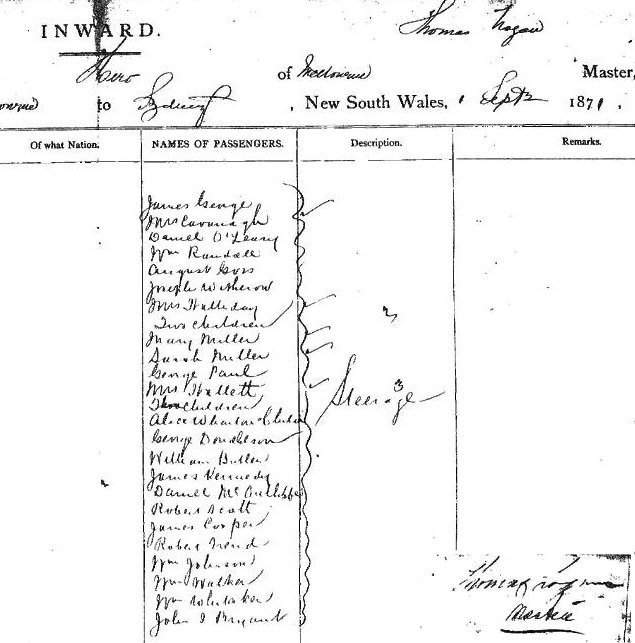 INWARD.
Thomas Logan
Hero of Melbourne Master,
ourne to Sydney, New South Wales, 1 Sept 1871,
Of what Nation. NAMES OF PASSENGERS. Description. Remarks.
James George
Mrs Cavanagh
Daniel O'Leary
Wm Randall
August
Joseph Witherow
Mrs Halliday
Two children
Mary Miller
Sarah Miller
George Paul
Mrs Hallett
children
Steerage
Alice
George Donaldson
William Butler
James Kennedy
Daniel
Robert Scott
James Cooper
Robert
Wm Johnson
Wm Walker
Wm Whitaker
John J Bryant
Thomas Logan
Master